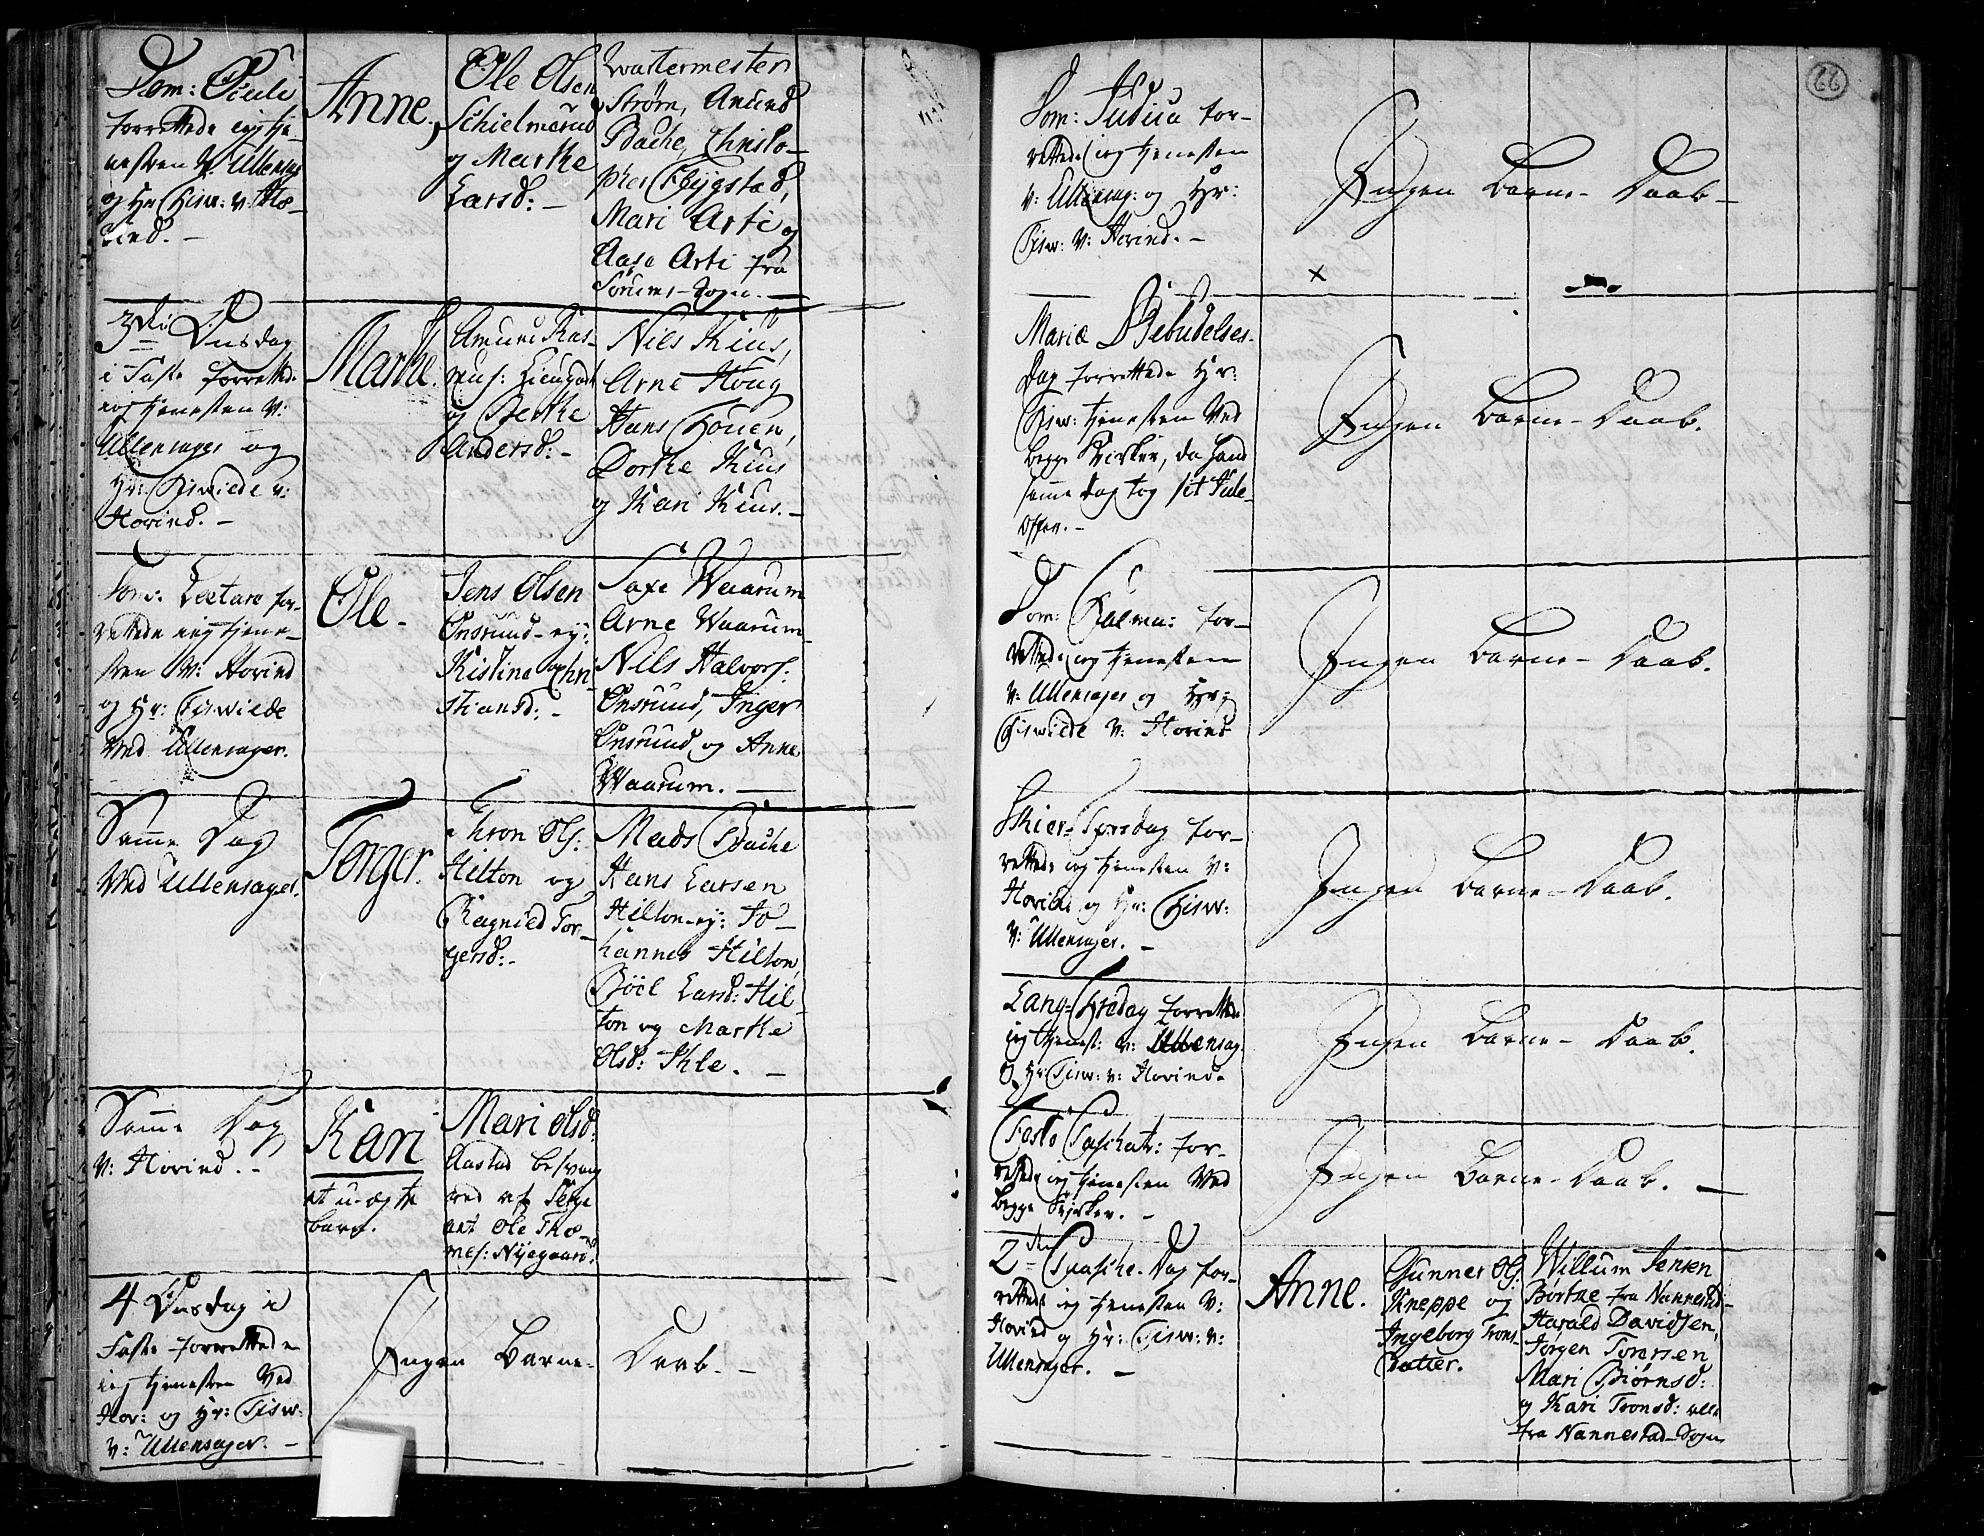 Dom: Oculi
forrettede ieg tje-
nesten v: Ullensag:
og Hr: Tisw: v: Ho-
vind. -
Anne,
Ole Olsen
Schielmerud
og Marthe
Larsd: -
Strøm, Amund
Bache, Christo-
pher Bÿgstad,
Mari Arti og
Aase Arti fra
Sørums-Sogn. -
3die Onsdag
i Faste forrettede
ieg tjenesten v:
Ullensager og
Hr: Tiswilde v:
Hovind. -
Marthe.
og Berthe
Andersd: -
Nils Kius,
Arne Houg
Hans Houen,
Dorthe Kius
og Kari Kius. -
Dom: Lætare for-
rettede ieg tjene-
sten v: Hovind
og Hr: Tiswilde
ved Ullensager.
Ole -
Jens Olsen
Onsrund-ej:
Kistine Chri-
stiansd: -
Saxe Waarum
Arne Waarum
Nils Halvors:
Onsrund, Inger
Onsrund og Anne
Waarum. -
Samme Dag
ved Ullensager.
Torger.
Thron Ols:
Hilton og
Ragnild Tor-
gersd: -
Mads Bache
Hans Larsen
Hilton-ej: Jo-
hannes Hilton,
Böel Larsd: Hil-
ton og Marthe
Olsd: Ihle. -
Samme Dag
v: Hovind. -
Kari
et u-ægte
barn.
Mari Olsd:
Aastad besvang-
red af Serge-
ant Ole Tho-
mes: Nÿegaard.
4 Onsdag i
Faste forrettede
ieg tjenesten ved
Hov: og Hr: Tisw:
v: Ullensager. -
Ingen Barne- Daab. -
66
Dom: Judica for-
rettede ieg tjenesten
v: Ullensag: og Hr:
Tisw: v: Hovind. -
Ingen Barne- Daab -
x
Mariæ Bebudelses-
Dag forrettede Hr:
Tisw: tjenesten ved
begge Kirker, da hand
samme dag tog sit Jule-
Offer. -
Ingen Barne- Daab.
Dom: Palma: for-
rettede ieg tjenesten
v: Ullensager og Hr:
Tiswilde v: Hovind
Ingen Barne- Daab.
Skier-Torsdag for-
rettede ieg tjenesten v:
Hovind og Hr: Tisw:
v: Ullensager. -
Ingen Barne- Daab.
Lang-Fredag forrettede
ieg tjenest: v: Ullensag:
og Hr: Tisw: v: Hovind.
Ingen Barne- Daab.
Festo Paschat: for-
rettede ieg tjenesten ved
begge Kirker. -
Ingen Barne- Daab. -
2den Paasche-Dag for-
rettede ieg tjenesten v:
Hovind og Hr: Tisw: v:
Ullensager. -
Anne.
Gunner Ols:
Kneppe og
Ingeborg Trons
Datter.
Willum Jensen
Borthe fra Nannestad-
Harald Davidsen,
Jørgen Toresen
Mari Biörnsd:
og Kari Tronsd: alle
fra Nannestad-Sogn